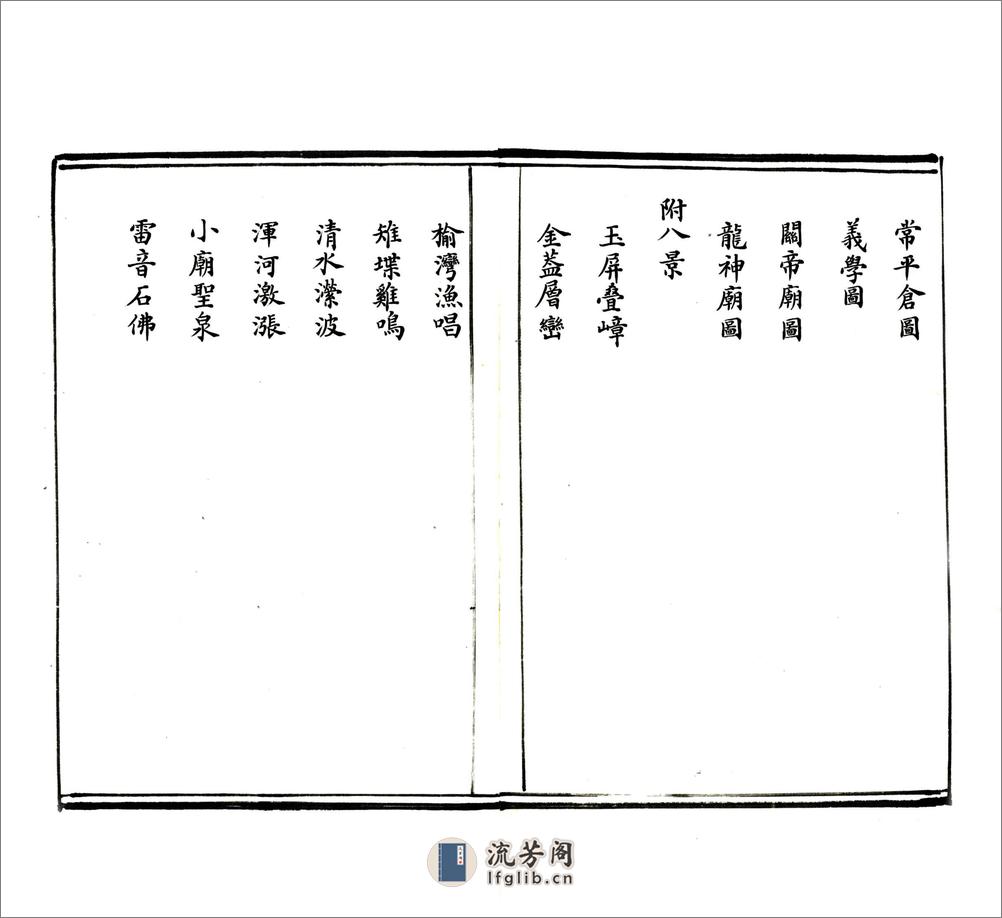 常平倉圖
義學圖
關帝廟圖
龍神廟圖
附八景
玉屏叠嶂
金葢層巒
榆灣漁唱
雉堞雞鳴
清水瀠波
渾河激漲
小廟聖泉
雷音石佛
流芳阁
lfglib.cn